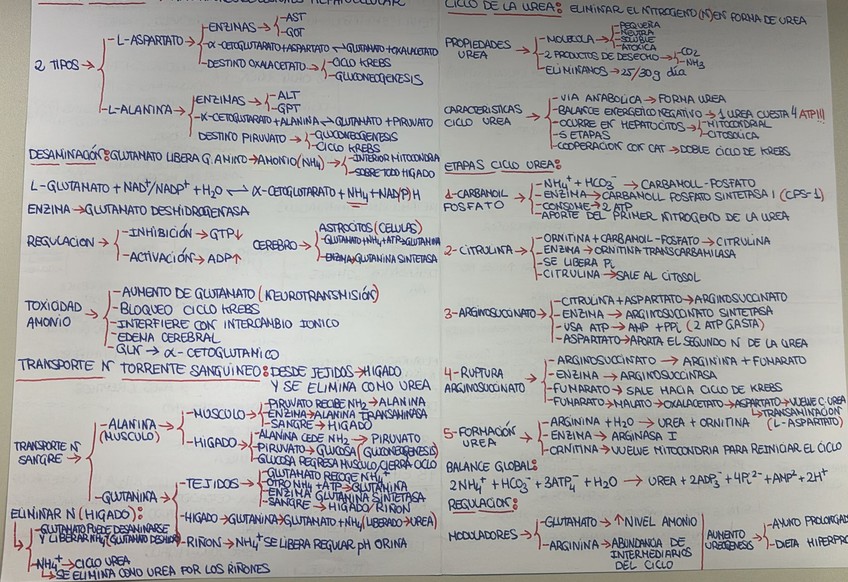 2 TIPOS →
-L-ASPARTATO →
-ENZIMAS →
-AST
-GOT
-α-CETOGLUTARATO+ASPARTATO ⇌ GLUTAMATO+OXALACETATO
-DESTINO OXALACETATO →
-CICLO KREBS
-GLUCONEOGENESIS
-L-ALANINA →
-ENZIMAS →
-ALT
-GPT
-α-CETOGLUTARATO+ALANINA ⇌ GLUTAMATO + PIRUVATO
DESTINO PIRUVATO →
-GLUCONEOGENESIS
-CICLO KREBS
DESAMINACIÓN: GLUTAMATO LIBERA G. AMINO → AMONIO (NH4) →
-INTERIOR MITOCONDRIA
-SOBRE TODO HIGADO
L-GLUTAMATO + NAD+/NADP+ + H2O ⇌ α-CETOGLUTARATO + NH4 + NAD(P)H
ENZIMA → GLUTAMATO DESHIDROGENASA
REGULACION →
-INHIBICIÓN → GTP↓
-ACTIVACIÓN → ADP↑
CEREBRO →
ASTROCITOS (CELULAS)
-GLUTAMATO+NH4+ATP→GLUTAMINA
-ENZIMA→GLUTAMINA SINTETASA
TOXICIDAD AMONIO →
-AUMENTO DE GLUTAMATO (NEUROTRANSMISIÓN)
-BLOQUEO CICLO KREBS
-INTERFIERE CON INTERCAMBIO IONICO
-EDEMA CEREBRAL
-GLN → α-CETOGLUTANICO
TRANSPORTE N TORRENTE SANGUINEO: DESDE TEJIDOS → HIGADO
Y SE ELIMINA COMO UREA
TRANSPORTE N SANGRE →
-ALANINA (MUSCULO) →
-MUSCULO →
-PIRUVATO RECIBE NH2 → ALANINA
-ENZIMA → ALANINA TRANSAMINASA
-SANGRE → HIGADO
-HIGADO →
-ALANINA CEDE NH2 → PIRUVATO
-PIRUVATO → GLUCOSA (GLUCONEOGENESIS)
-GLUCOSA REGRESA MUSCULO CIERRA CICLO
-GLUTANINA →
-TEJIDOS →
-GLUTAMATO RECOGE NH4+
-OTRO NH4 + ATP → GLUTAMINA
-ENZIMA GLUTAMINA SINTETASA
-SANGRE → HIGADO/RIÑON
-HIGADO → GLUTAMINA → GLUTAMATO + NH4 (LIBERADO → UREA)
-RIÑON → NH4+ SE LIBERA REGULAR pH ORINA
ELIMINAR N (HIGADO):
-GLUTAMATO PUEDE DESAMINARSE
Y LIBERAR NH4+
-NH4+ → CICLO UREA
↳ SE ELIMINA COMO UREA POR LOS RIÑONES
CICLO DE LA UREA: ELIMINAR EL NITROGENO (N) EN FORMA DE UREA
PROPIEDADES UREA →
-MOLECULA →
-PEQUEÑA
-NEUTRA
-SOLUBLE
-ATOXICA
-2 PRODUCTOS DE DESECHO →
-CO2
-NH3
-ELIMINAMOS → 25/30g día
CARACTERISTICAS CICLO UREA →
-VIA ANABOLICA → FORMA UREA
-BALANCE ENERGETICO NEGATIVO → 1 UREA CUESTA 4 ATP!!!
-OCURRE EN HEPATOCITOS →
-MITOCONDRIAL
-CITOSOLICA
-5 ETAPAS
-COOPERACION CON CAT → DOBLE CICLO DE KREBS
ETAPAS CICLO UREA:
1-CARBAMOIL FOSFATO →
-NH4+ + HCO3- → CARBAMOLL-FOSFATO
-ENZIMA → CARBAMOLL FOSFATO SINTETASA I (CPS-1)
-CONSUME → 2 ATP
-APORTE DEL PRIMER NITROGENO DE LA UREA
2-CITRULINA →
-ORNITINA + CARBAMOIL-FOSFATO → CITRULINA
-ENZIMA → ORNITINA TRANSCARBAMILASA
-SE LIBERA Pi
-CITRULINA → SALE AL CITOSOL
3-ARGINOSUCCINATO →
-CITRULINA + ASPARTATO → ARGINOSUCCINATO
-ENZIMA → ARGINOSUCCINATO SINTETASA
-USA ATP → AMP + PPi (2 ATP GASTA)
-ASPARTATO → APORTA EL SEGUNDO N DE LA UREA
4-RUPTURA ARGINOSUCCINATO →
-ARGINOSUCCINATO → ARGININA + FUMARATO
-ENZIMA → ARGINOSUCCINASA
-FUMARATO → SALE HACIA CICLO DE KREBS
-FUMARATO → MALATO → OXALACETATO → ASPARTATO → VUELVE C. UREA
↳ TRANSAMINACION
(L-ASPARTATO)
5-FORMACIÓN UREA →
-ARGININA + H2O → UREA + ORNITINA
-ENZIMA → ARGINASA I
-ORNITINA → VUELVE MITOCONDRIA PARA REINICIAR EL CICLO
BALANCE GLOBAL:
2NH4+ + HCO3- + 3ATP4- + H2O → UREA + 2ADP3- + 4Pi2- + AMP2- + 2H+
REGULACION:
MODULADORES →
-GLUTAMATO → ↑ NIVEL AMONIO
-ARGININA → ABUNDANCIA DE INTERMEDIARIOS DEL CICLO
AUMENTO UREOGENESIS →
-AYUNO PROLONGAD
-DIETA HIPERPRO